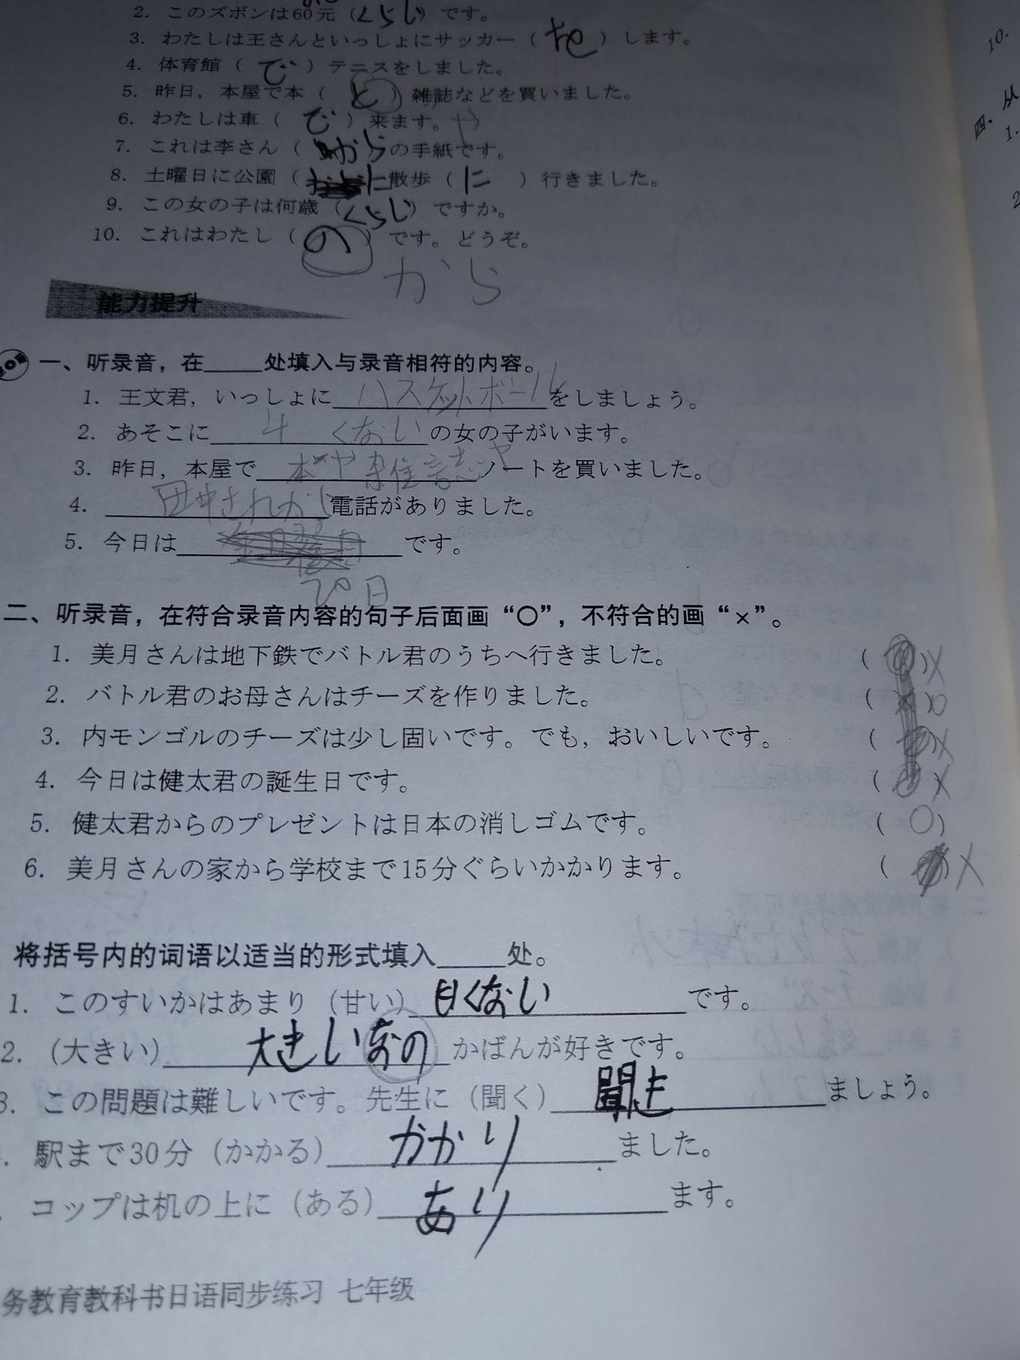 2. このズボンは60元（くらい）です。
3. わたしは王さんといっしょにサッカー（を）します。
4. 体育館（で）テニスをしました。
5. 昨日，本屋で本（と）雑誌などを買いました。
や
6. わたしは車（で）来ます。
7. これは李さん（からの手紙です。
8. 土曜日に公園（に散歩（に）行きました。
9. この女の子は何歳（くらい）ですか。
10. これはわたし（の）です。どうぞ。
から
能力提升
一、听录音，在____处填入与录音相符的内容。
1. 王文君，いっしょにバスケットボールをしましょう。
2. あそこに くないの女の子がいます。
3. 昨日，本屋で本や雑誌やノートを買いました。
4. 田中さんから電話がありました。
5. 今日は です。
日
二、听录音，在符合录音内容的句子后面画“○”，不符合的画“×”。
1. 美月さんは地下鉄でバトル君のうちへ行きました。 （ ）×
2. バトル君のお母さんはチーズを作りました。 （ ）○
3. 内モンゴルのチーズは少し固いです。でも，おいしいです。 （ ）×
4. 今日は健太君の誕生日です。 （ ）×
5. 健太君からのプレゼントは日本の消しゴムです。 （○）
6. 美月さんの家から学校まで15分ぐらいかかります。 （ ）×
将括号内的词语以适当的形式填入____处。
1. このすいかはあまり（甘い）甘くないです。
2.（大きい）大きいなのかばんが好きです。
3. この問題は難しいです。先生に（聞く）聞きましょう。
. 駅まで30分（かかる）かかりました。
. コップは机の上に（ある）あります。
务教育教科书日语同步练习 七年级
10.
四、从
1.
2